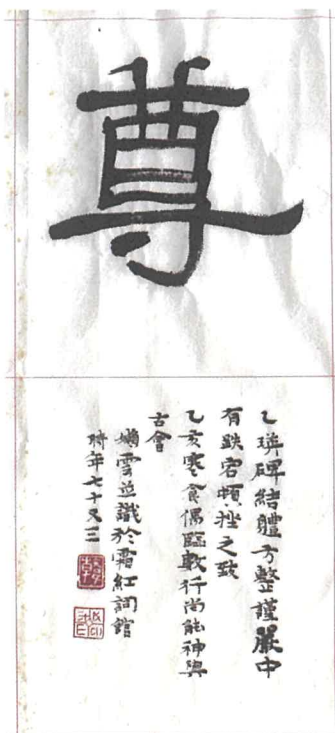 尊
乙瑛碑結體方整謹嚴中
有跌宕頓挫之致
乙亥寒食偶臨數行尚能神與
古會
嬾雲並識於霜紅詞館
時年七十又三